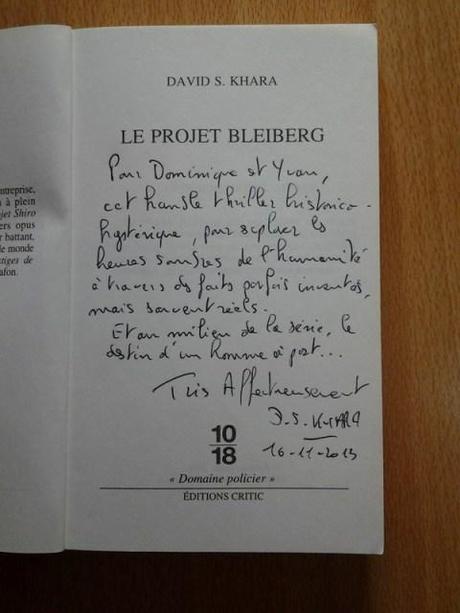 DAVID S. KHARA
LE PROJET BLEIBERG
Pour Dominique et Yvan,
cet humble thriller historico-
hystérique, pour explorer les
heures sombres de l'humanité
à travers des faits parfois inventés,
mais souvent réels.
Et au milieu de la série, le
destin d'un homme à part...
Très Affectueusement
D.S. KHARA
16-11-2013
10
18
« Domaine policier »
ÉDITIONS CRITIC
ntreprise,
à plein
jet Shiro
ers opus
battant,
le monde
tiges de
afon.